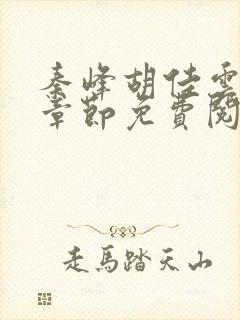 秦峰胡佳雲
章節免費閱
走馬踏天山